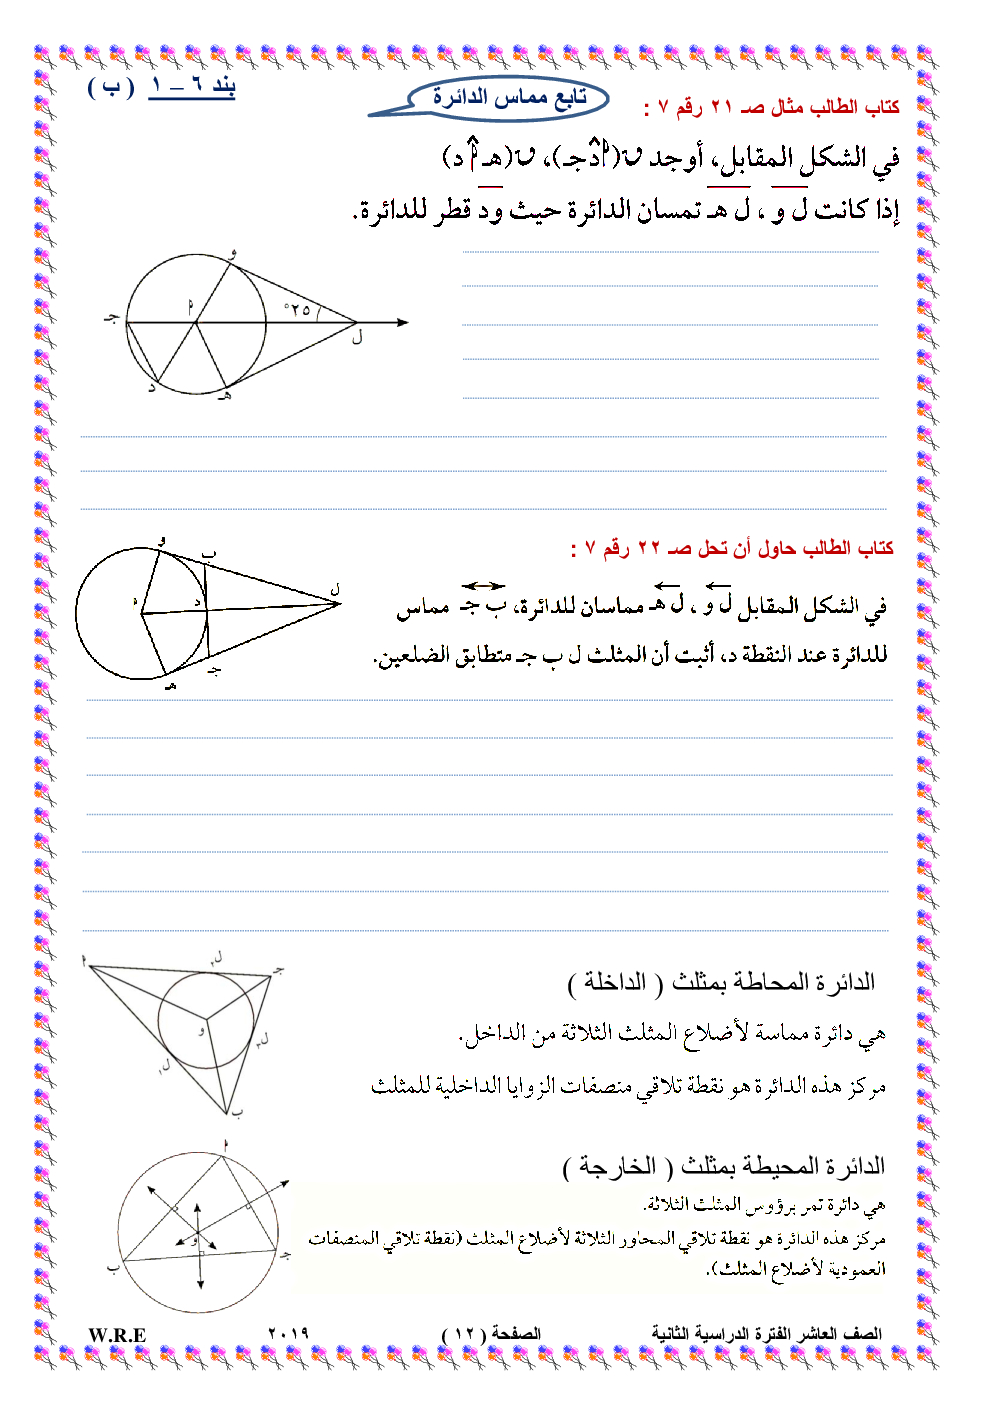 بند ٦ – ١ ( ب )
تابع مماس الدائرة
كتاب الطالب مثال صـ ٢١ رقم ٧ :
في الشكل المقابل، أوجد ن(م د جـ)، ن(هـ م د)
إذا كانت ل و ، ل هـ تمسان الدائرة حيث ود قطر للدائرة.
و
م
٢٥°
جـ
ل
د
هـ
كتاب الطالب حاول أن تحل صـ ٢٢ رقم ٧ :
في الشكل المقابل ل و ، ل هـ مماسان للدائرة، ب جـ مماس
للدائرة عند النقطة د، أثبت أن المثلث ل ب جـ متطابق الضلعين.
و
ب
ل
م
د
جـ
هـ
الدائرة المحاطة بمثلث ( الداخلة )
هي دائرة مماسة لأضلاع المثلث الثلاثة من الداخل.
مركز هذه الدائرة هو نقطة تلاقي منصفات الزوايا الداخلية للمثلث
م
ل٢
جـ
و
ل٣
ل١
ب
الدائرة المحيطة بمثلث ( الخارجة )
هي دائرة تمر برؤوس المثلث الثلاثة.
مركز هذه الدائرة هو نقطة تلاقي المحاور الثلاثة لأضلاع المثلث (نقطة تلاقي المنصفات
العمودية لأضلاع المثلث).
م
و
جـ
ب
الصف العاشر الفترة الدراسية الثانية الصفحة ( ١٢ ) ٢٠١٩ W.R.E